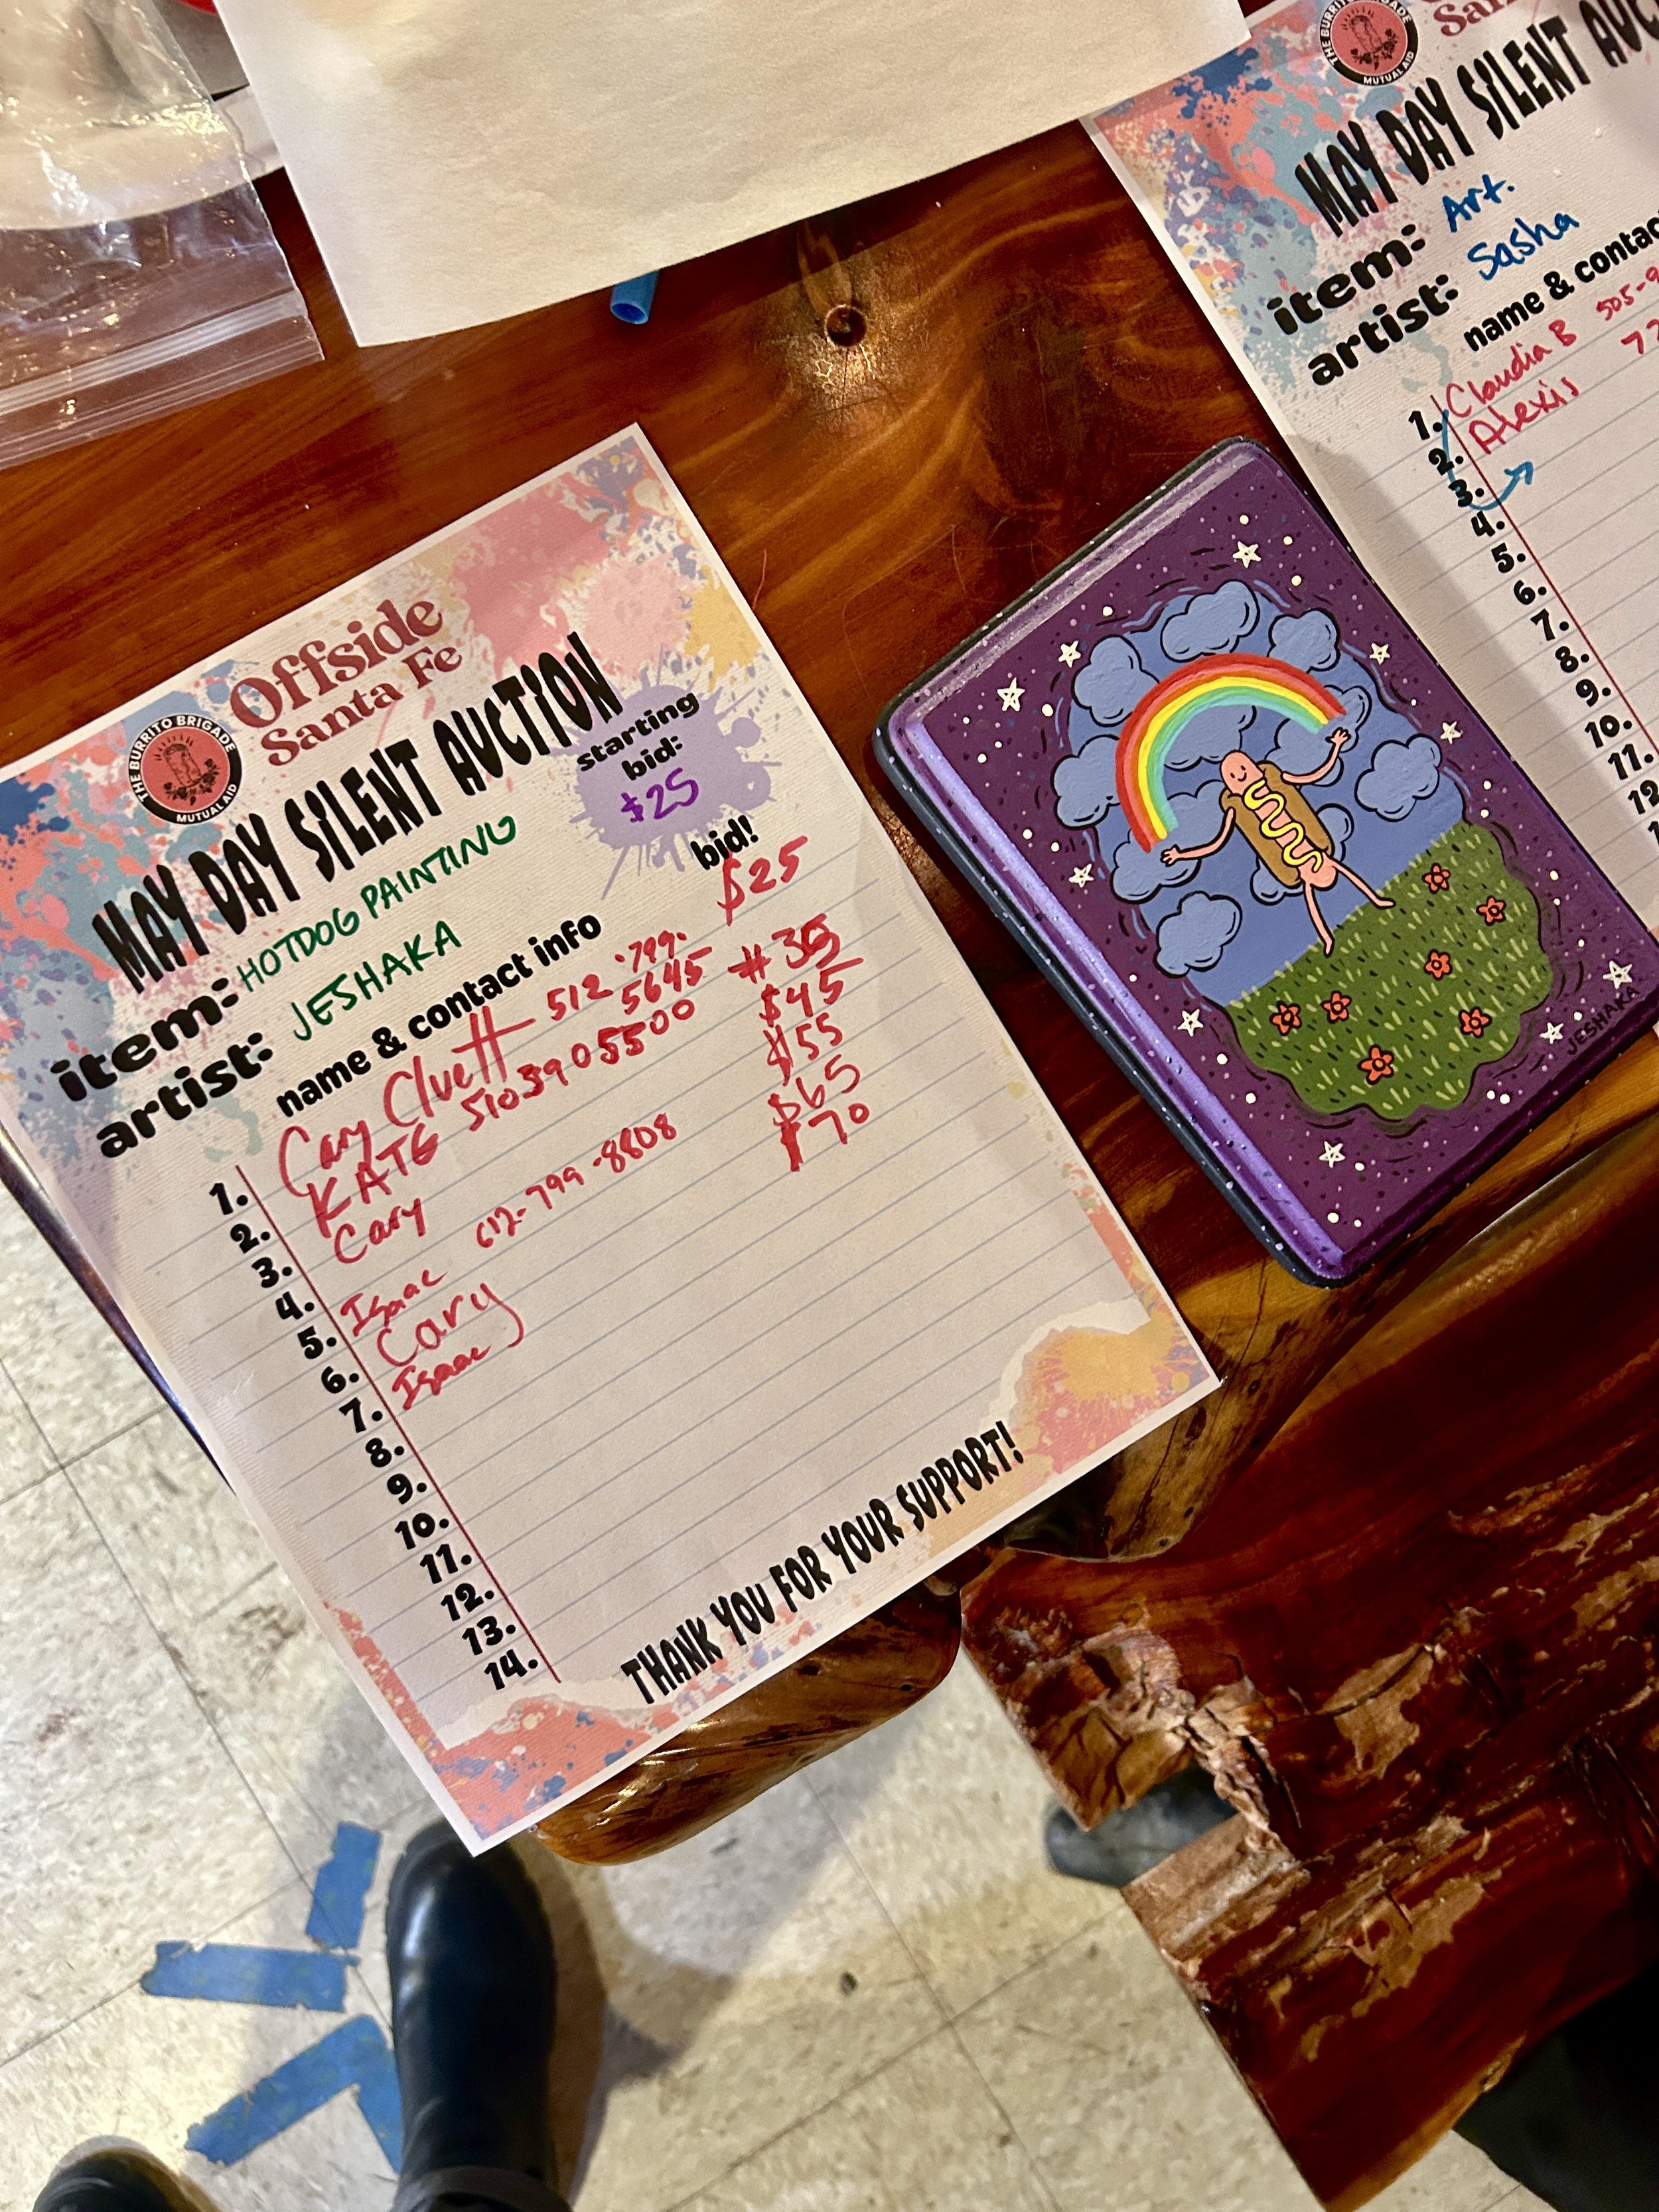 Offside
Santa Fe
THE BURRITO BRIGADE
MUTUAL AID
MAY DAY SILENT AUCTION
starting
bid:
$25
item: HOTDOG PAINTING
artist: JESHAKA
name & contact info bid!
1. Cary Cluett 512-799-5645 $25
2. KATE 5103905500
3. Cary $45
4. Isaac 612-799-8808 $55
5. Cary $65
6. Isaac $70
7.
8.
9.
10.
11.
12.
13.
14.
THANK YOU FOR YOUR SUPPORT!
JESHAKA
THE BURRITO BRIGADE
MUTUAL AID
MAY DAY SILENT
item: Art.
artist: Sasha
name &
1. Claudia B
2. Alexis
3.
4.
5.
6.
7.
8.
9.
10.
11.